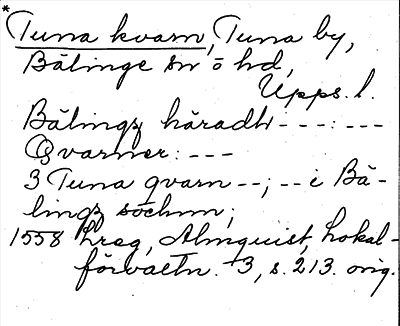 *
Tuna kvarn, Tuna by,
Bälinge sn o hd,
Upps. l.
Bälingz häradh ---:---
Qvarner: ---
3 Tuna qvarn --; -- i Bä-
lingz sochnn;
1558 Lreg, Almquist, Lokal-
förvaltn. 3, s. 213. orig.